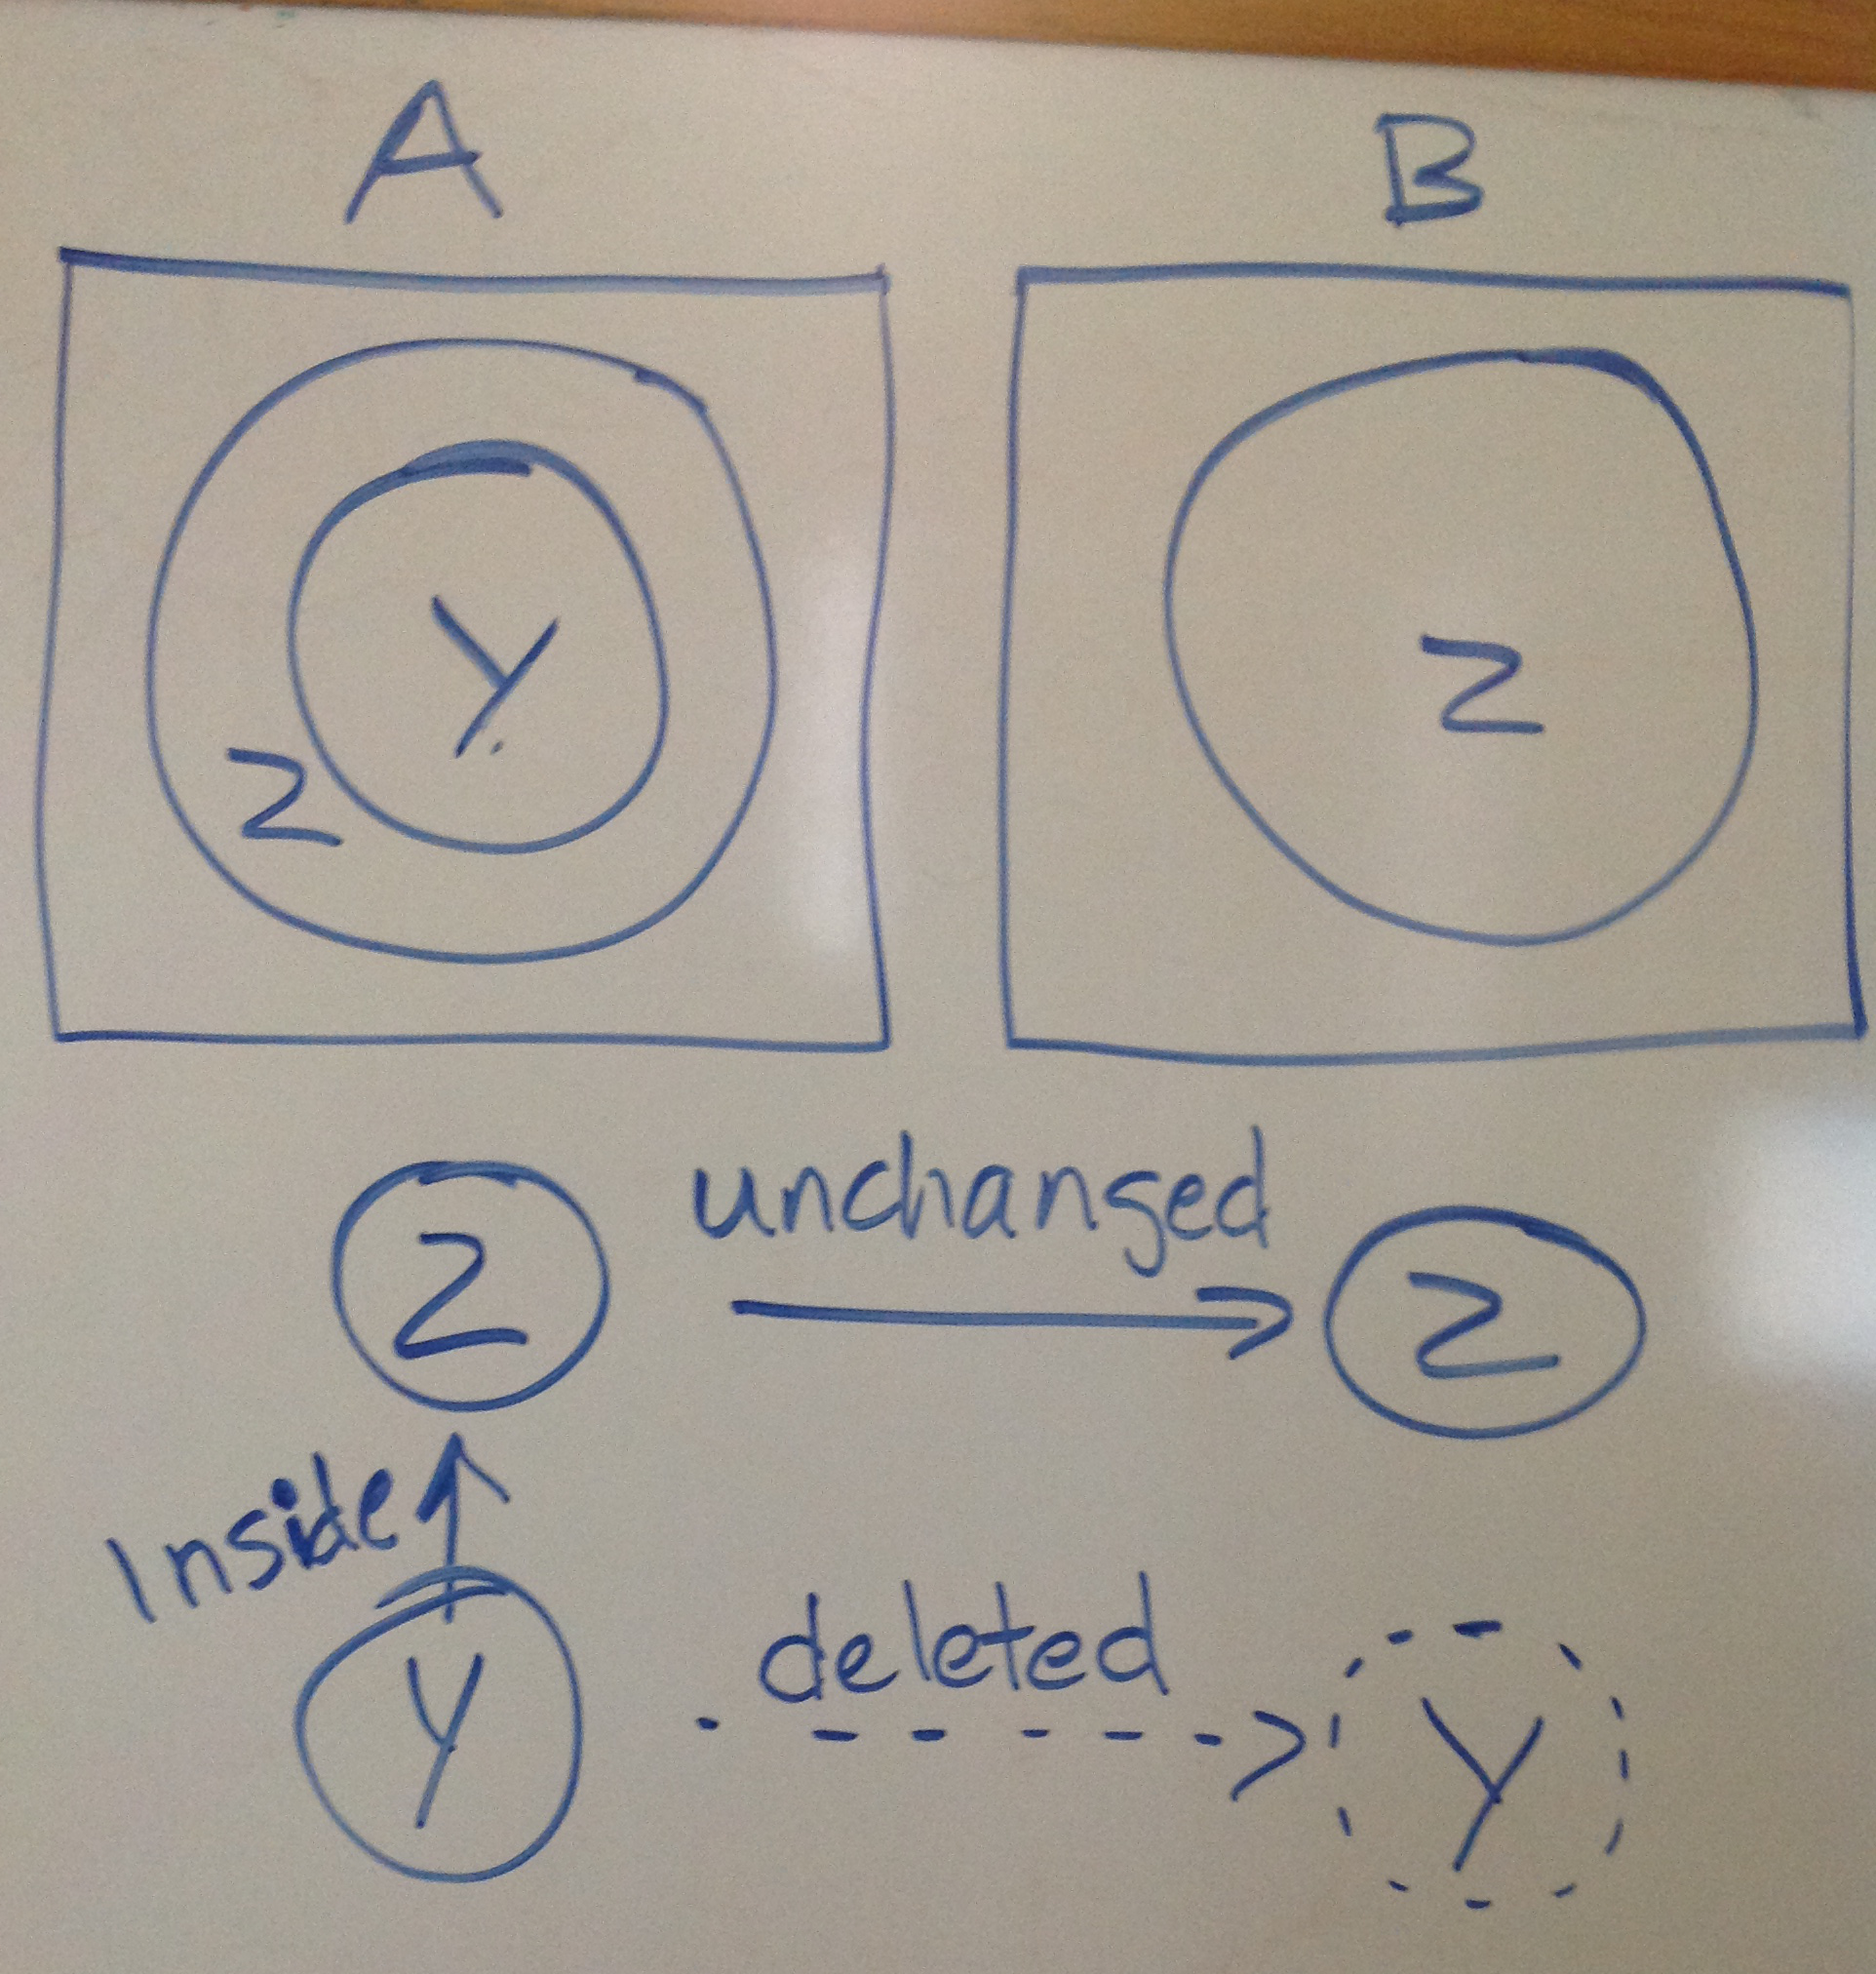 A B
Y
Z
Z
unchanged
Z Z
Inside
deleted
Y Y